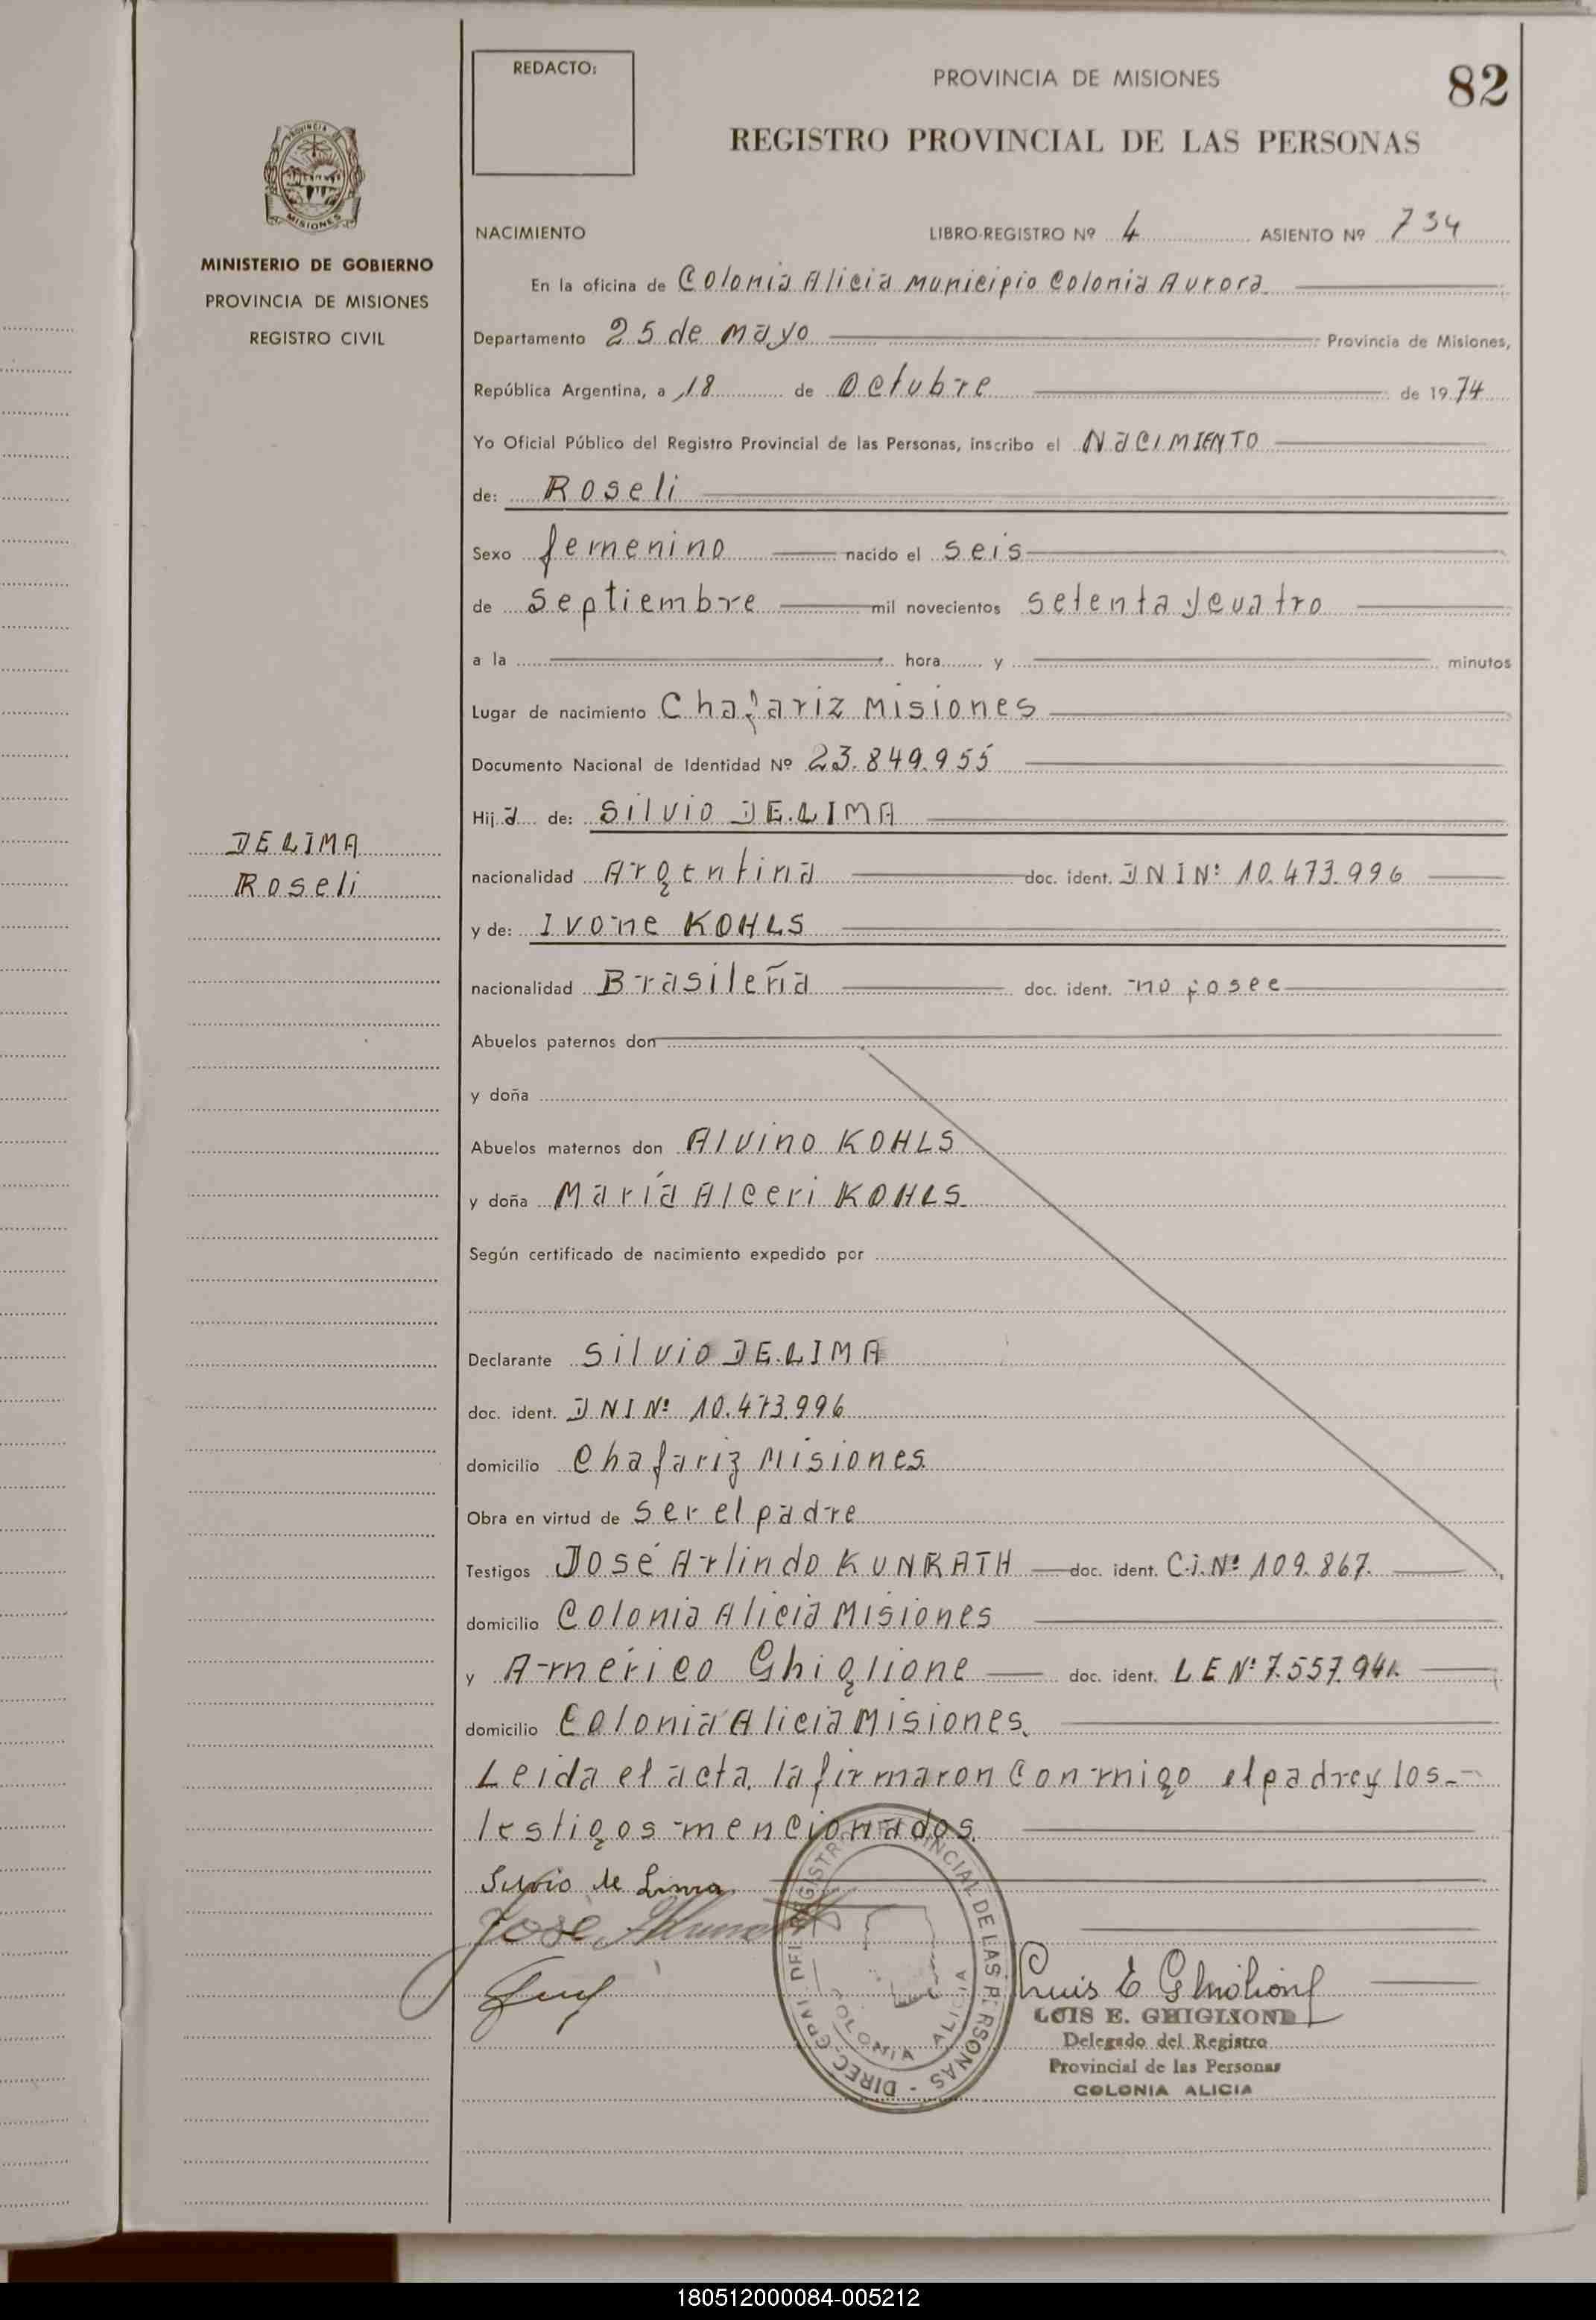 REDACTO:
PROVINCIA DE MISIONES
82
REGISTRO PROVINCIAL DE LAS PERSONAS
PROVINCIA DE
MISIONES
MINISTERIO DE GOBIERNO
PROVINCIA DE MISIONES
REGISTRO CIVIL
NACIMIENTO LIBRO-REGISTRO Nº 4 ASIENTO Nº 734
En la oficina de Colonia Alicia Municipio Colonia Aurora
Departamento 25 de Mayo Provincia de Misiones,
República Argentina, a 18 de Octubre de 1974
Yo Oficial Público del Registro Provincial de las Personas, inscribo el NaCIMIENTO
de: Roseli
Sexo femenino nacido el seis
de Septiembre mil novecientos setenta y cuatro
a la hora y minutos
Lugar de nacimiento Chafariz Misiones
Documento Nacional de Identidad Nº 23.849.955
Hija de: Silvio DE.LIMA
DE LIMA
Roseli
nacionalidad Argentina doc. ident. DNI Nº 10.473.996
y de: Ivone KOHLS
nacionalidad Brasileña doc. ident. no posee
Abuelos paternos don
y doña
Abuelos maternos don Alvino KOHLS
y doña María Alceri KOHLS
Según certificado de nacimiento expedido por
Declarante Silvio DE.LIMA
doc. ident. DNI Nº 10.473.996
domicilio Chafariz Misiones
Obra en virtud de ser el padre
Testigos José Arlindo KUNRATH doc. ident. C.I. Nº 109.867.
domicilio Colonia Alicia Misiones
y Américo Ghiglione doc. ident. L E Nº 7.557.941.
domicilio Colonia Alicia Misiones.
Leida el acta, la firmaron conmigo el padre y los
testigos mencionados.
Silvio de Lima
José
DIREC. GRAL. DEL REGISTRO PROVINCIAL DE LAS PERSONAS
COLONIA ALICIA
Luis E Ghiglione
LUIS E. GHIGLIONE
Delegado del Registro
Provincial de las Personas
COLONIA ALICIA
180512000084-005212